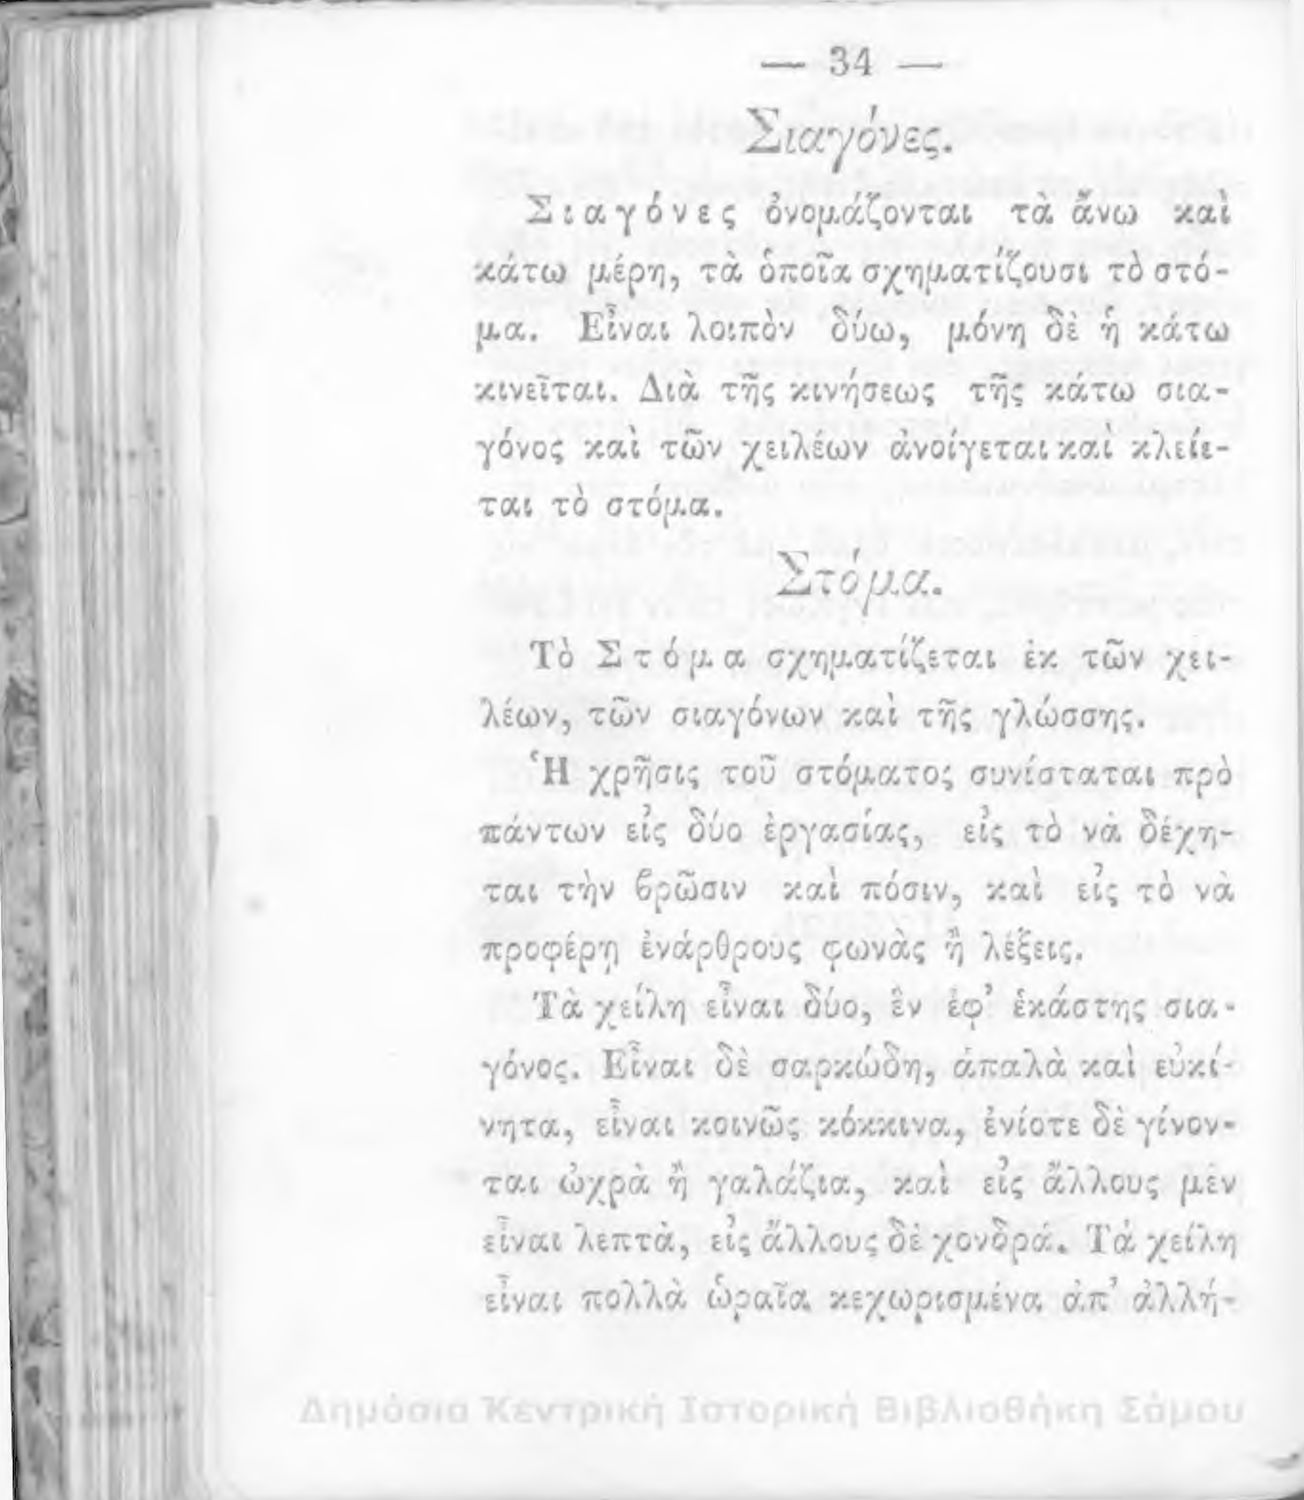 — 34 —
Σιαγόνες.
Σιαγόνες ὀνομάζονται τὰ ἄνω καὶ
κάτω μέρη, τὰ ὁποῖα σχηματίζουσι τὸ στό-
μα. Εἶναι λοιπὸν δύω, μόνη δὲ ἡ κάτω
κινεῖται. Διὰ τῆς κινήσεως τῆς κάτω σια-
γόνος καὶ τῶν χειλέων ἀνοίγεται καὶ κλείε-
ται τὸ στόμα.
Στόμα.
Τὸ Στόμα σχηματίζεται ἐκ τῶν χει-
λέων, τῶν σιαγόνων καὶ τῆς γλώσσης.
Ἡ χρῆσις τοῦ στόματος συνίσταται πρὸ
πάντων εἰς δύο ἐργασίας, εἰς τὸ νὰ δέχη-
ται τὴν βρῶσιν καὶ πόσιν, καὶ εἰς τὸ νὰ
προφέρῃ ἐνάρθρους φωνὰς ἢ λέξεις.
Τὰ χείλη εἶναι δύο, ἓν ἐφ’ ἑκάστης σια-
γόνος. Εἶναι δὲ σαρκώδη, ἁπαλὰ καὶ εὐκί-
νητα, εἶναι κοινῶς κόκκινα, ἐνίοτε δὲ γίνον-
ται ὠχρὰ ἢ γαλάζια, καὶ εἰς ἄλλους μὲν
εἶναι λεπτὰ, εἰς ἄλλους δὲ χονδρά. Τὰ χείλη
εἶναι πολλὰ ὡραῖα κεχωρισμένα ἀπ’ ἀλλή-
Δημόσια Κεντρική Ιστορική Βιβλιοθήκη Σάμου